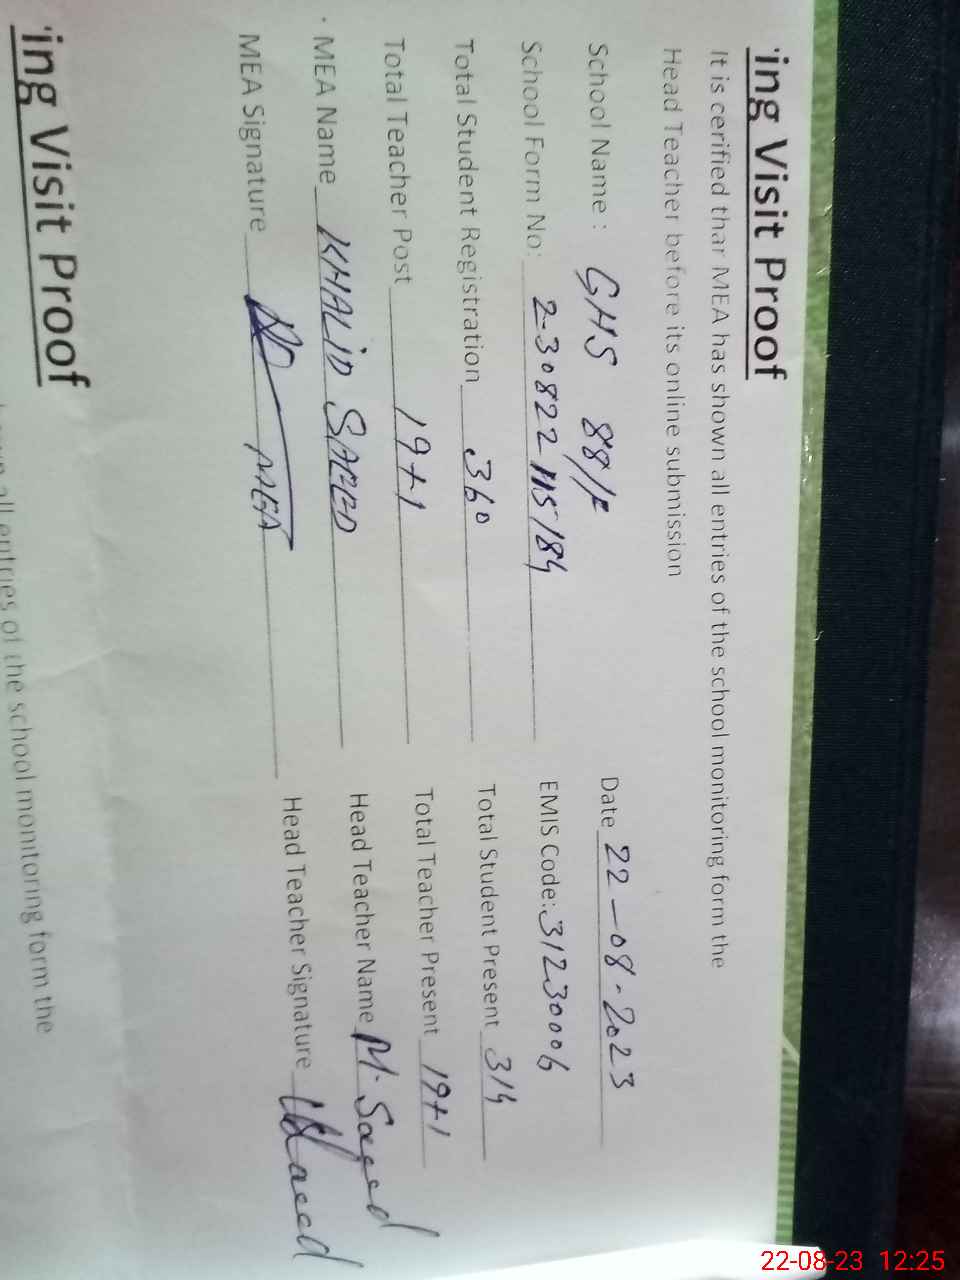 'ing Visit Proof
It is cerified thar MEA has shown all entries of the school monitoring form the
Head Teacher before its online submission
School Name : GHS 88/F Date 22-08-2023
School Form No: 2-30822-115184 EMIS Code: 31230006
Total Student Registration 360 Total Student Present 314
Total Teacher Post 19+1 Total Teacher Present 19+1
MEA Name KHALID SAEED Head Teacher Name M. Saeed
MEA Signature MEA Head Teacher Signature
'ing Visit Proof
all entries of the school monitoring form the
22-08-23 12:25